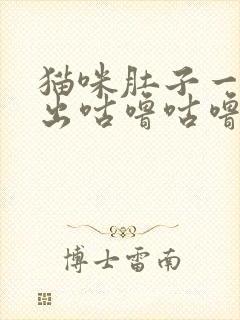 猫咪肚子一
出咕噜咕噜
博士雷南